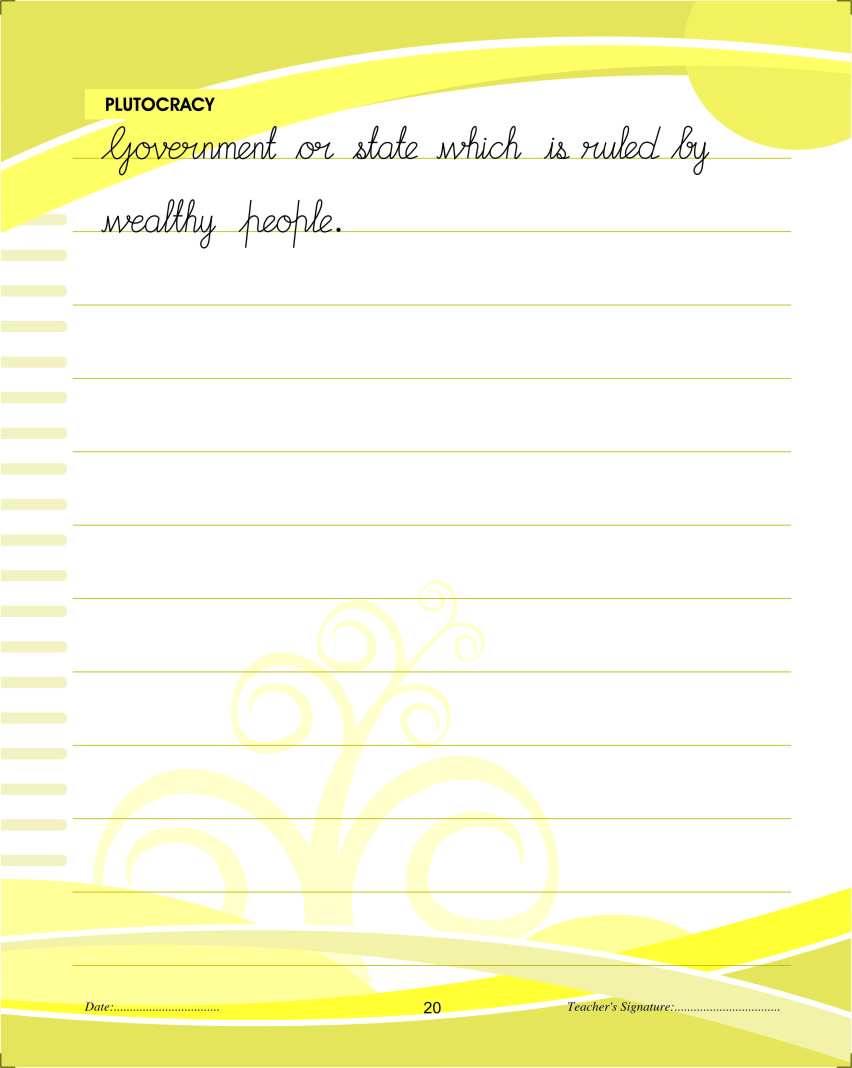 PLUTOCRACY
Government or state which is ruled by
wealthy people.
Date:................................. 20 Teacher's Signature:.................................